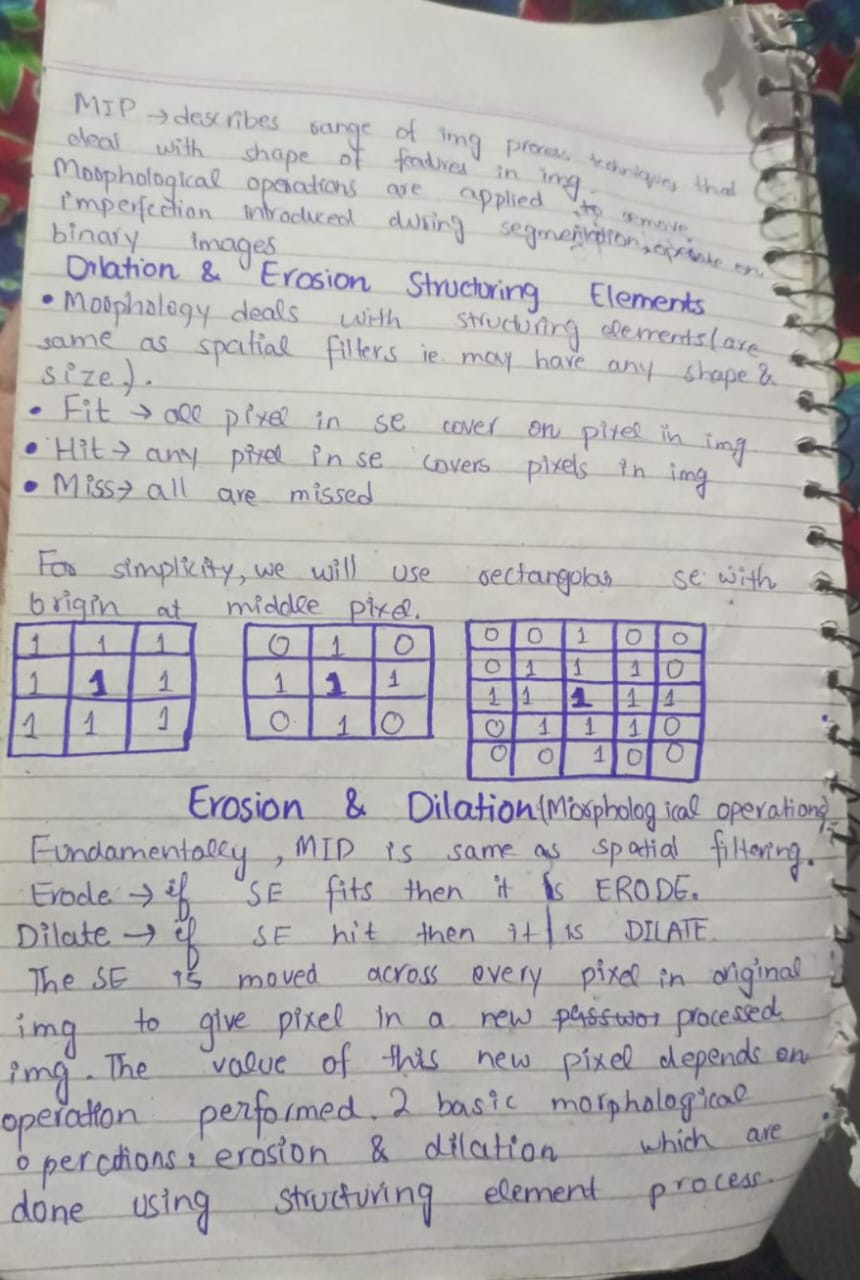 MIP → describes range of img process techniques that
deal with shape of features in img.
Morphological operations are applied to remove
imperfection introduced during segmentation, operate on
binary images
Dilation & Erosion Structuring Elements
• Morphology deals with structuring elements (are
same as spatial filters ie. may have any shape &
size).
• Fit → all pixel in se cover on pixel in img
• Hit → any pixel in se covers pixels in img
• Miss → all are missed
For simplicity, we will use rectangolar se with
origin at middle pixel.
1 1 1
1 1 1
1 1 1
0 1 0
1 1 1
0 1 0
0 0 1 0 0
0 1 1 1 0
1 1 1 1 1
0 1 1 1 0
0 0 1 0 0
Erosion & Dilation (Morphological operation)
Fundamentally, MIP is same as spatial filtering.
Erode → if SE fits then it is ERODE.
Dilate → if SE hit then it is DILATE.
The SE is moved across every pixel in original
img to give pixel in a new processed
img. The value of this new pixel depends on
operation performed. 2 basic morphological
operations: erosion & dilation which are
done using structuring element process.